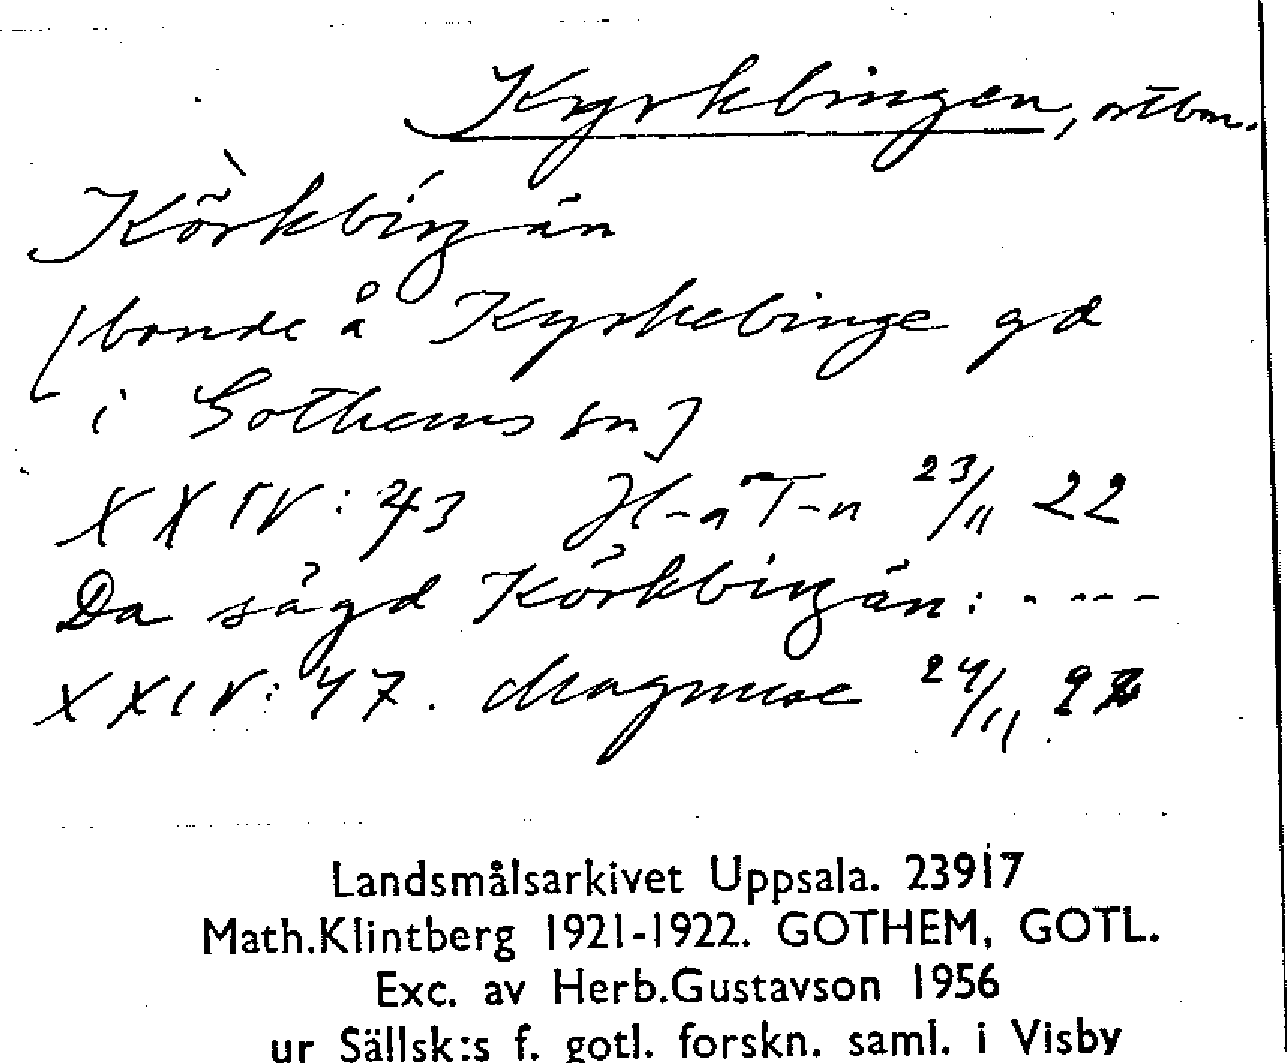 Kyrkbingen, ortbm.
Körkbingän
[bonde å Kyrkebinge gd
i Gothems sn]
XXIV: 43 23/11 22
Da sägd Körkbingän: ----
XXIV: 47. Magnuse 24/11 22
Landsmålsarkivet Uppsala. 23917
Math.Klintberg 1921-1922. GOTHEM, GOTL.
Exc. av Herb.Gustavson 1956
ur Sällsk:s f. gotl. forskn. saml. i Visby